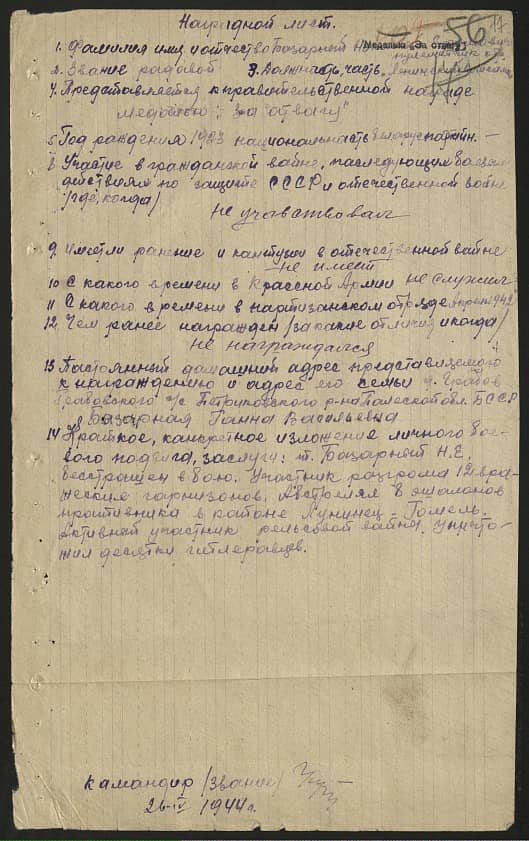 Наградной лист.
56
Медалью „За отвагу"
1. Фамилия имя и отчество Базарный
2. Звание рядовой 3. Должность, часть,
4. Представляется к правительственной награде
медалью: "За отвагу"
5. Год рождения 1903 национальность белорус партийн. —
8 Участие в гражданской вайне, паследующим боевым
действиям по защите СССР и отечественной войне
/где, когда/
не учавствовал
9. Имеет ли ранение и кантузии в отечественной вайне
не имеет
10 С какого времени в Красеной Армии не служил
11 С какого времени в партизанском отряде апрель 1942
12. Чем ранее награжден /за какие отличия и когда/
не награждался
13 Пастоянный дамашний адрес представляемого
к награждению и адрес его семьи д. Грабов
Грабовского с/с Петриковского р-на Полеской обл. БССР
Базарная Ганна Васильевна
14 Краткое, канкретное изложение личного бое-
вого подвига, заслуги: т. Базарный Н.Е.
бесстрашен в бою. Участник разгрома 12 вра-
жеских гарнизонов.
8 эшалонов
противника в районе Лунинец - Гомель.
Активный участник рельсовой вайны. Уничто-
жил десятки гитлеровцев.
камандир /звание/
26-IV 1944 г.